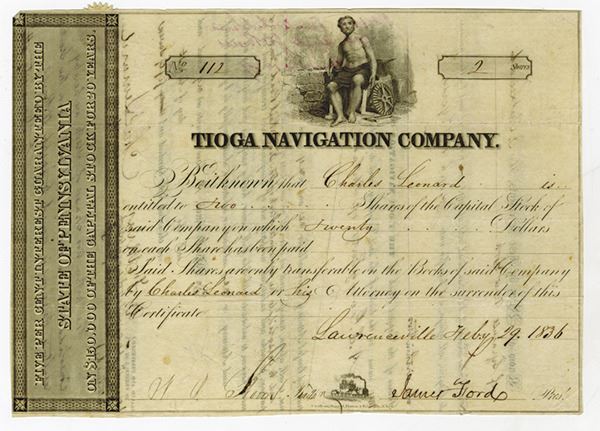 FIVE PER CENT INTEREST GUARANTEED BY THE
STATE OF PENNSYLVANIA
ON $150,000 OF THE CAPITAL STOCK FOR 30 YEARS.
No 112
2 Shares
TIOGA NAVIGATION COMPANY.
Be it known that Charles Leonard is
entitled to Two Shares of the Capital Stock of
said Company on which Twenty Dollars
on each Share has been paid
Said Shares are only transferable on the Books of said Company
by Charles Leonard or his Attorney on the surrender of this
Certificate
Lawrenceville Feby 29. 1836
James Ford Prest